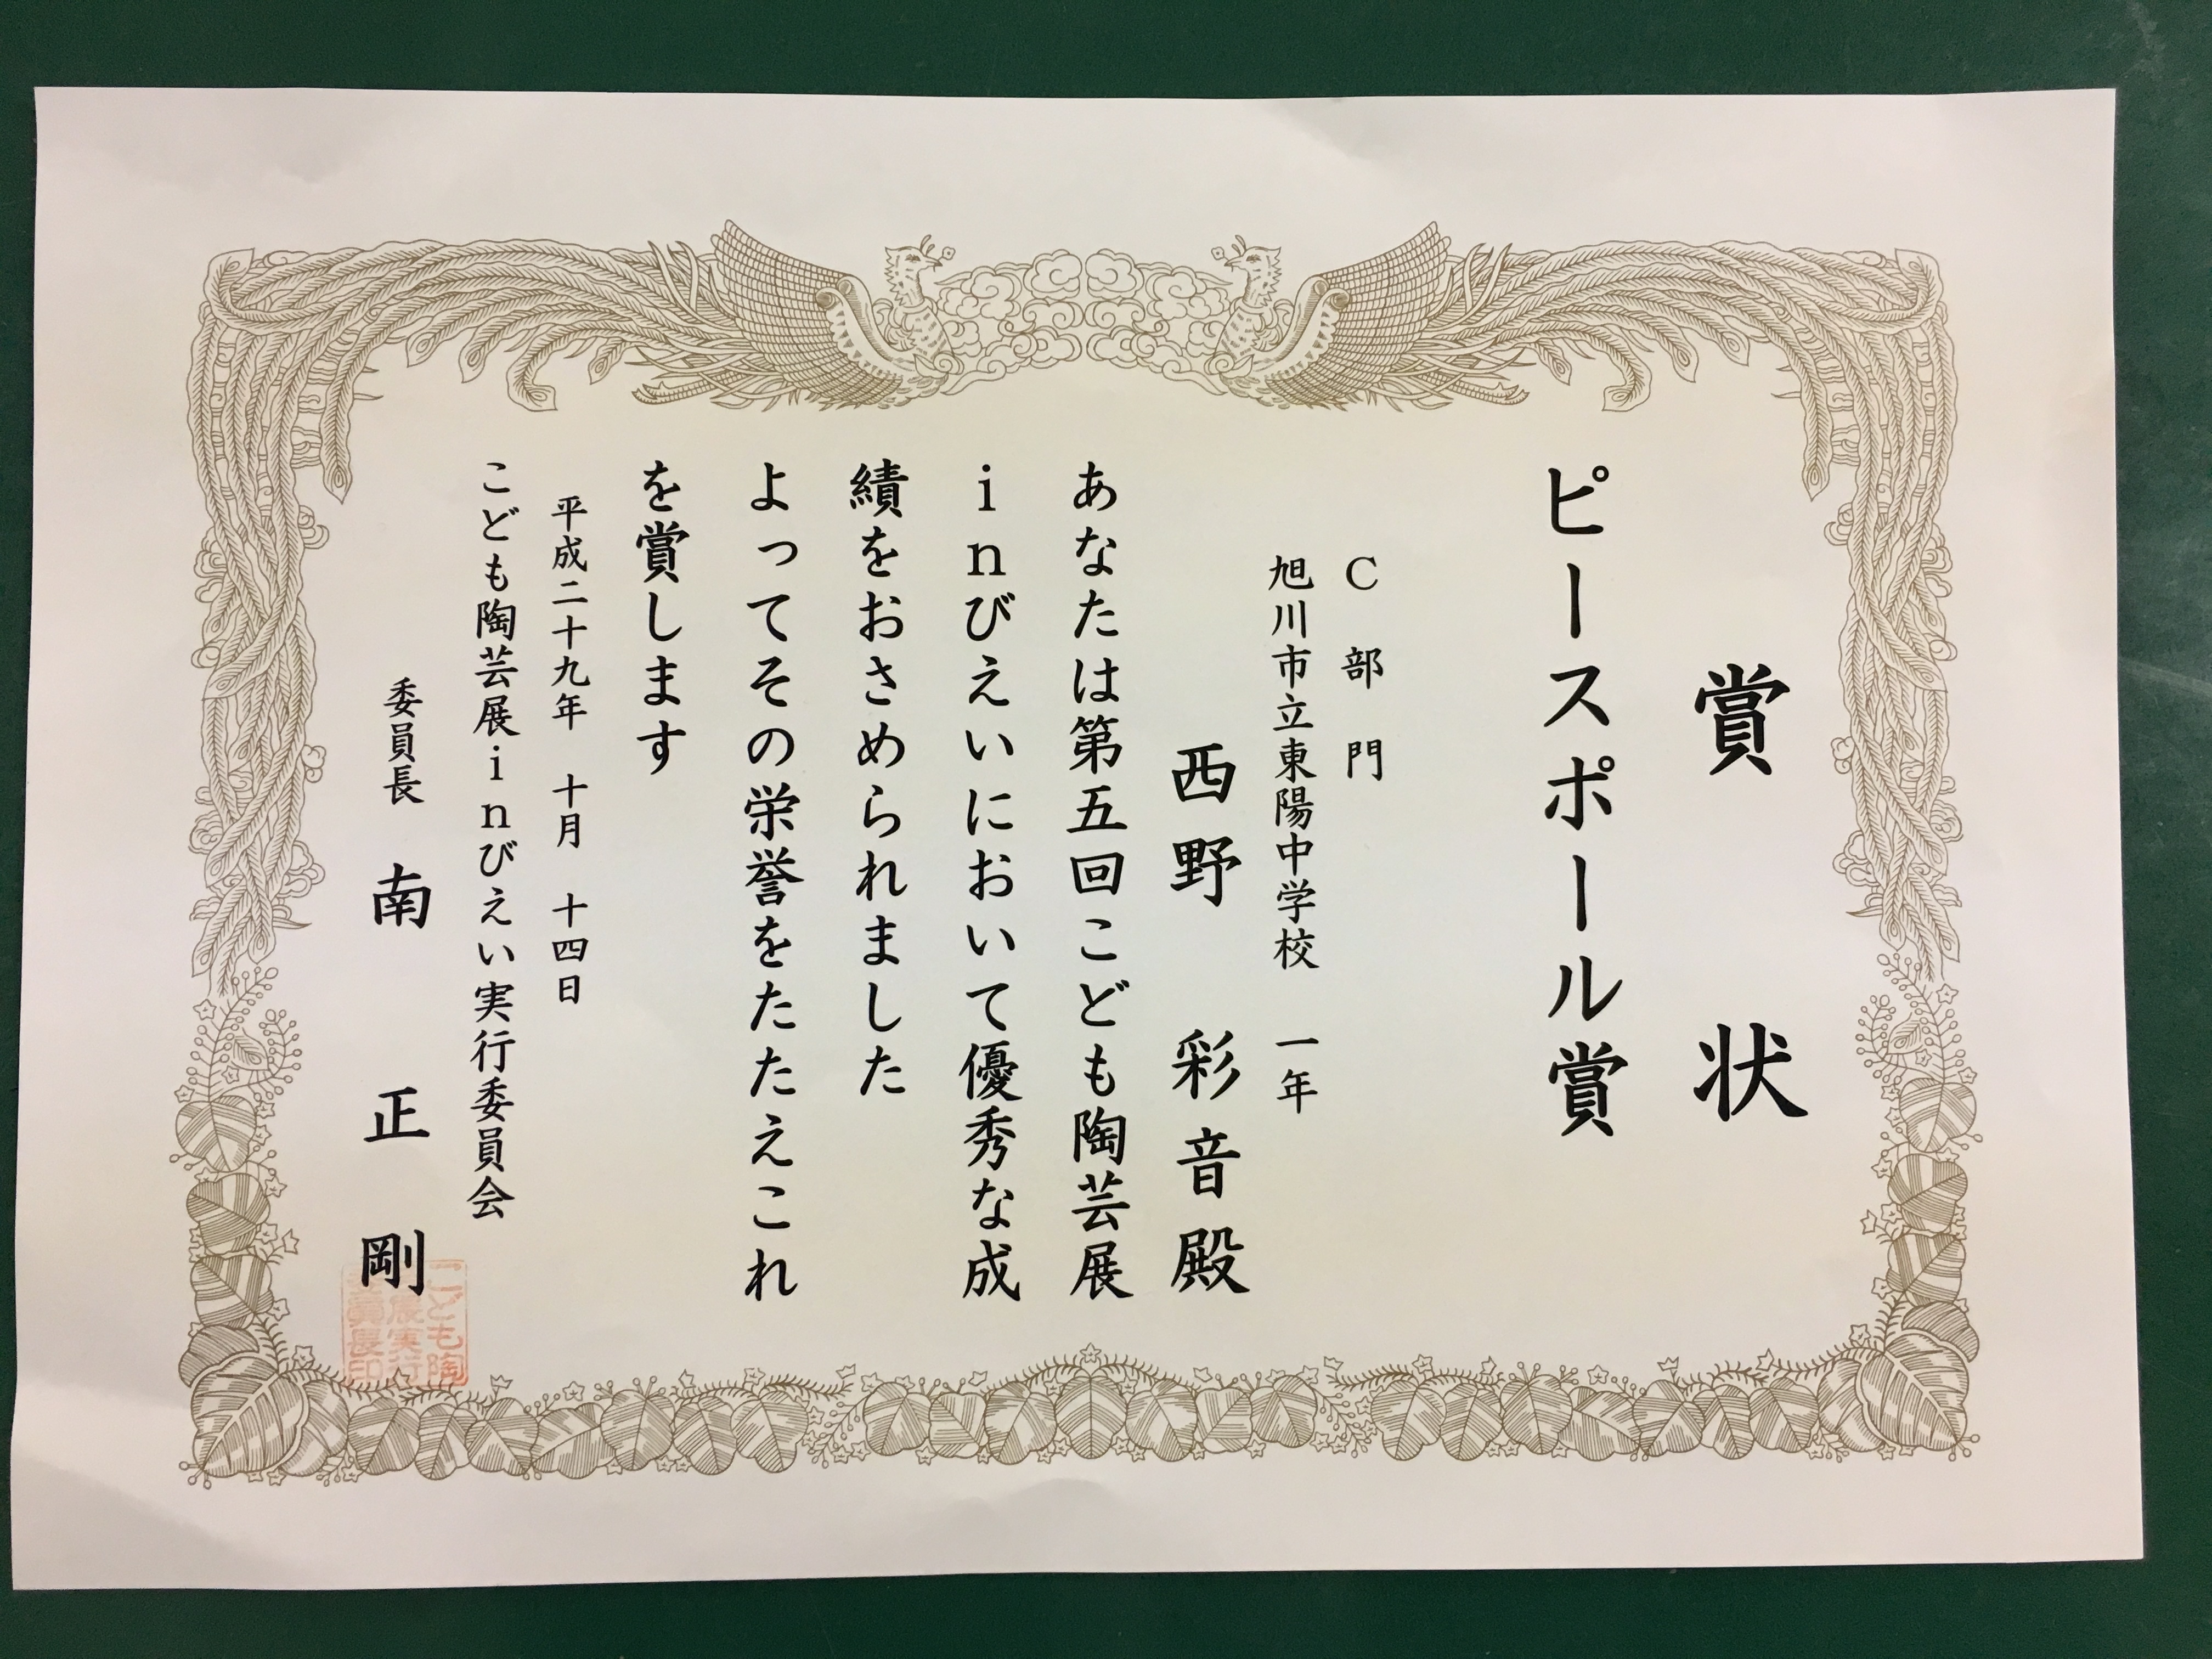 賞状
ピースポール賞
C部門
旭川市立東陽中学校 一年
西野 彩音殿
あなたは第五回こども陶芸展
inびえいにおいて優秀な成
績をおさめられました
よってその栄誉をたたえこれ
を賞します
平成二十九年 十月 十四日
こども陶芸展inびえい実行委員会
委員長 南 正剛
こども陶
展実行
委員長印